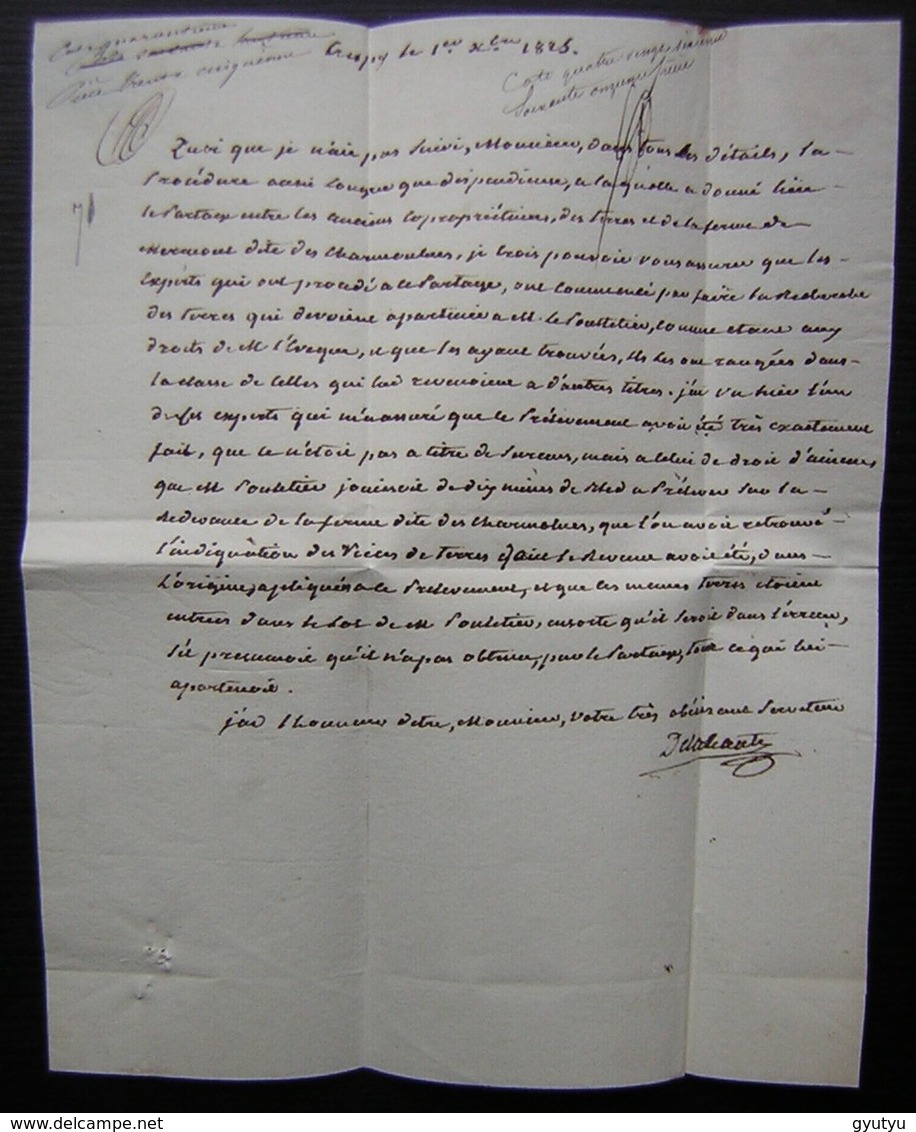 Crepy le 1er Xbre 1825.
Cote quatre vingt
Soixante onzieme piece
piece trente cinquieme
71
Quoi que je n'aie pas suivi, Monsieur, dans tous les détails, la
procédure aussi longue que dispendieuse, a laquelle a donné lieu
le Partage entre les anciens copropriétaires, des terres et de la ferme de
Mermont dite des Charmolues, je crois pouvoir vous assurer que les
Experts qui ont procédé a ce Partage, ont commencé par faire la Recherche
des Terres qui devoient apartenir a M. le Pelletier, comme etant aux
droits de M l'Eveque, et que les ayant trouvées, ils les ont rangées dans
la classe de celles qui lui revenoient a d'autres titres. j'ai vu hier l'un
de ses experts qui m'a assuré que le Prélevement avoit été très exactement
fait, que ce n'étoit pas a titre de surcens, mais a celui de droit d'ainesse,
que M jouissoit de dix mines de Bled a Prélever sur la
Redevance de la ferme dite des Charmolues, que l'on avoit retrouvé
l'indiquation des Pieces de terres dont le Revenu avoit été, dans
l'origine, appliqué a ce Prélevement, et que les memes terres etoient
entrées dans le Lot de M ensorte qu'il seroit dans l'erreur,
s'il presumoit qu'il n'a pas obtenu, par le Partage, tout ce qui lui
apartenoit.
j'ai l'honneur d'etre, Monsieur, votre très obéissant serviteur
Delahante
gyutyu
www.delcampe.net